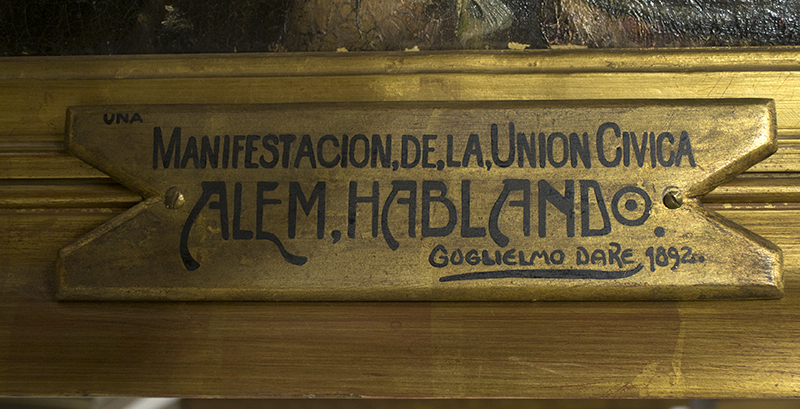 UNA
MANIFESTACION,DE,LA,UNION CIVICA
ALEM, HABLANDO.
GOGLIELMO DARE 1892..